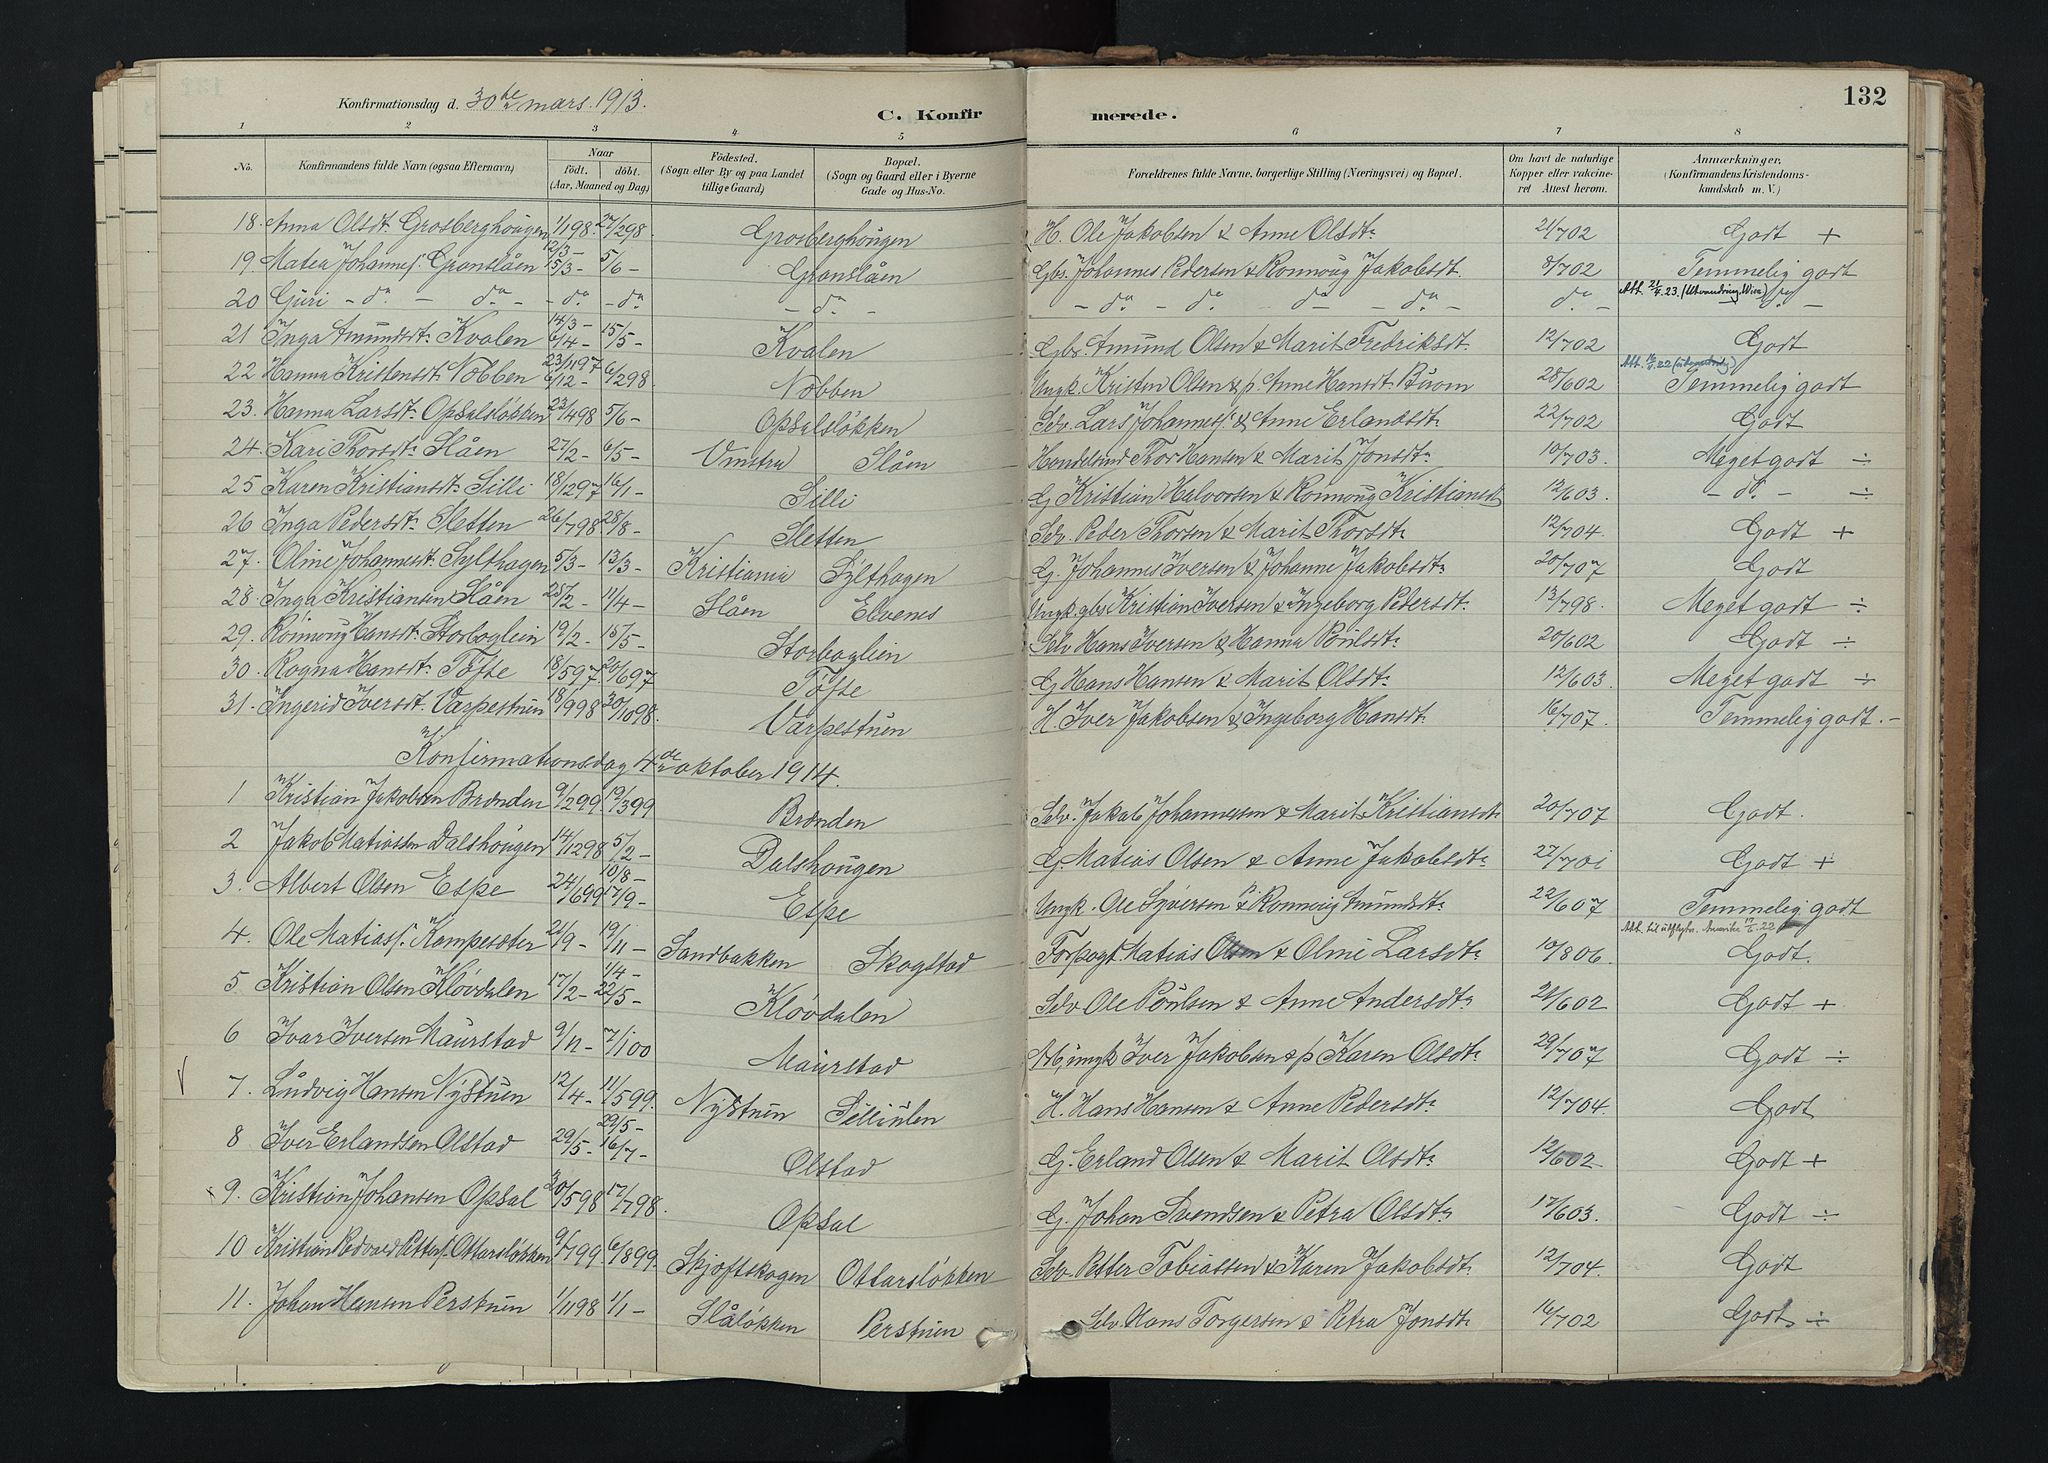 132
Konfirmationsdag d. 30de mars. 1913.
C. Konfirmerede.
1 2 3 4 5 6 7 8
No. Konfirmandens fulde Navn (ogsaa Efternavn) Naar født. døbt. (Aar, Maaned og Dag) Fødested. (Sogn eller By og paa Landet tillige Gaard) Bopæl. (Sogn og Gaard eller i Byerne Gade og Hus-No. Forældrenes fulde Navne, borgerlige Stilling (Næringsvei) og Bopæl. Om havt de naturlige Kopper eller vakcineret Attest herom. Anmærkninger, (Konfirmandens Kristendomskundskab m. V.)
18. Anna Olsdt. Grosberghougen 1/198. 27/298. Grosberghougen H. Ole Jakobsen & Anne Olsdtr 21/702 Godt +
19. Matea Johannesf. Granslåen 12/3 – 15/3 – 5/6 – Granslåen Gbr. Johannes Pedersen & Ronnoug Jakobsdt. 8/702 Temmelig godt
20 Guri – do – do – – do – do – do – – do – do do – do – do – Att. 21/4. 23. (Utvandring) – do –
21 Inga Amundsdt. Kvalen 14/3 – 6/4 – 15/5 – Kvalen Gbr. Amund Olsen & Marit Fredriksdt. 12/702 Godt
22 Hanna Kristensdt. Nobben 23/1197 6/12 – 6/298 Nobben Ungk. Kristen Olsen & p. Anne Hansdt. 28/602 Temmelig godt
23. Hanna Larsdt. Opsalsløkken 23/498 5/6 – Opsalsløkken Selv. Lars Johannesf. & Anne Erlandsdtr 22/702 Godt
24. Kari Thorsdtr Slåen 27/2 – 6/5 – Vinstra Slåen Thor Hansen & Marit Jonsdtr 10/703. Meget godt ÷
25 Karen Kristiansdt. Silli 18/1297 16/1 – Silli G. Kristian Halvorsen & Ronnoug Kristiansdt 12/603. – do. – ÷
26 Inga Pedersdtr Sletten 26/798 28/8 – Sletten Selv. Peder Thorsen & Marit Thorsdtr 12/704. Godt +
27. Oline Johannesdt. Sylthagen 5/3 – 13/3 – Kristiania Sylthagen G. Johannes Iversen & Johanne Jakobsdtr 20/707 Godt
28. Inga Kristiansen Slåen 25/2 – 11/4 – Slåen Elvenes Ungk. gbr. Kristian Iversen & Ingeborg Pedersdtr 13/798. Meget godt ÷
29. Rønnoug Hansdtr Storboglien 19/2 – 15/5 – Storboglien Selv Hans Iversen & Hanna Poulsdtr 20/602 Godt ÷
30. Rogna Hansdtr Tofte 18/597. 20/697 Tofte G Hans Hansen & Marit Olsdtr 12/603. Meget godt ÷
31. Ingerid Iversdt. Varpestuen 18/998 30/1098. Varpestuen H. Iver Jakobsen & Ingeborg Hansdtr 16/707. Temmelig godt. –
Konfirmationsdag 4de oktober 1914.
1 Kristian Jakobsen Brænden 9/299 19/399 Brænden Selv. Jakob Johannessen & Marit Kristiansdt 20/707 Godt.
2 Jakob Matiassen Dalshougen 14/1298 5/2 – Dalshougen G. Matias Olsen & Anne Jakobsdtr 27/701 Godt +
3. Albert Olsen Espe 24/699 10/8 – 17/9 – Espe Ungk. Ole Syversen & Ronnoug Amundsdtr 22/607 Temmelig godt
4. Ole Matiasf. Kampesæter 21/9 – 19/11 – Sandbakken Skogstad Forpagt. Matias Olsen & Oline Larsdtr 10/806. Att. til utflytn. Amerika 17/5. 22 Godt.
5 Kristian Olsen Kløvdalen 17/2 – 1/4 – 22/5 – Kløvdalen Selv Ole Poulsen & Anne Andersdtr 21/602 Godt +
6 Ivar Iversen Maurstad 9/11 – 7/100 Maurstad ungk Iver Jakobsen & p Karen Olsdtr 29/707 Godt ÷
7. Ludvig Hansen Nystuen 12/4 – 11/599. Nystuen Selliulen H. Hans Hansen & Anne Pedersdtr 12/704. Godt
8 Iver Erlandsen Olstad 29/5 – 29/5 – 16/7 – Olstad G. Erland Olsen & Marit Olsdtr 12/602 Godt +
9. Kristian Johansen Opsal 30/598 17/798. Opsal G. Johan Svendsen & Petra Olsdtr 17/603. Godt ÷
10 Kristian Redvald Petterf. Ottarsløkken 9/799 6/899. Skjæftskogen Ottarsløkken Selv. Petter Tobiassen & Karen Jakobsdtr 12/704. Godt
11. Johan Hansen Perstuen 1/1198 1/1 – Slåløkken Perstuen Selv. Hans Torgersen & Petra Jonsdtr 16/702 Godt. ÷